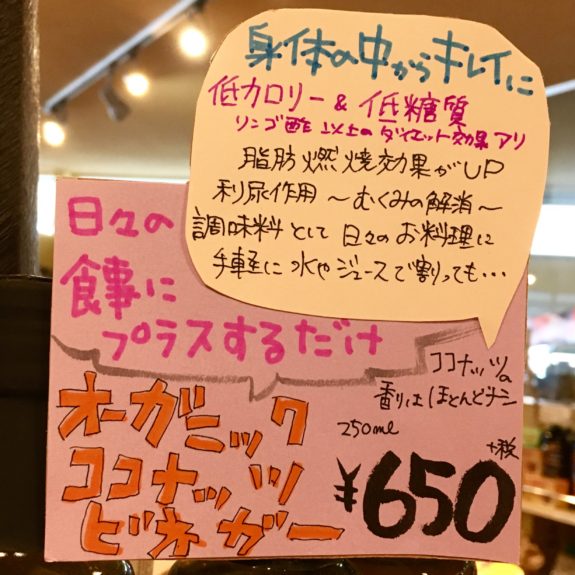 身体の中からキレイに
低カロリー & 低糖質
リンゴ酢 以上の ダイエット効果 アリ
脂肪燃焼効果がUP
利尿作用 〜むくみの解消〜
調味料として 日々のお料理に
手軽に 水やジュースで割っても・・・
日々の
食事に
プラスするだけ
ココナッツの
香りはほとんどナシ
オーガニック
ココナッツ
ビネガー
250ml
¥650
+税